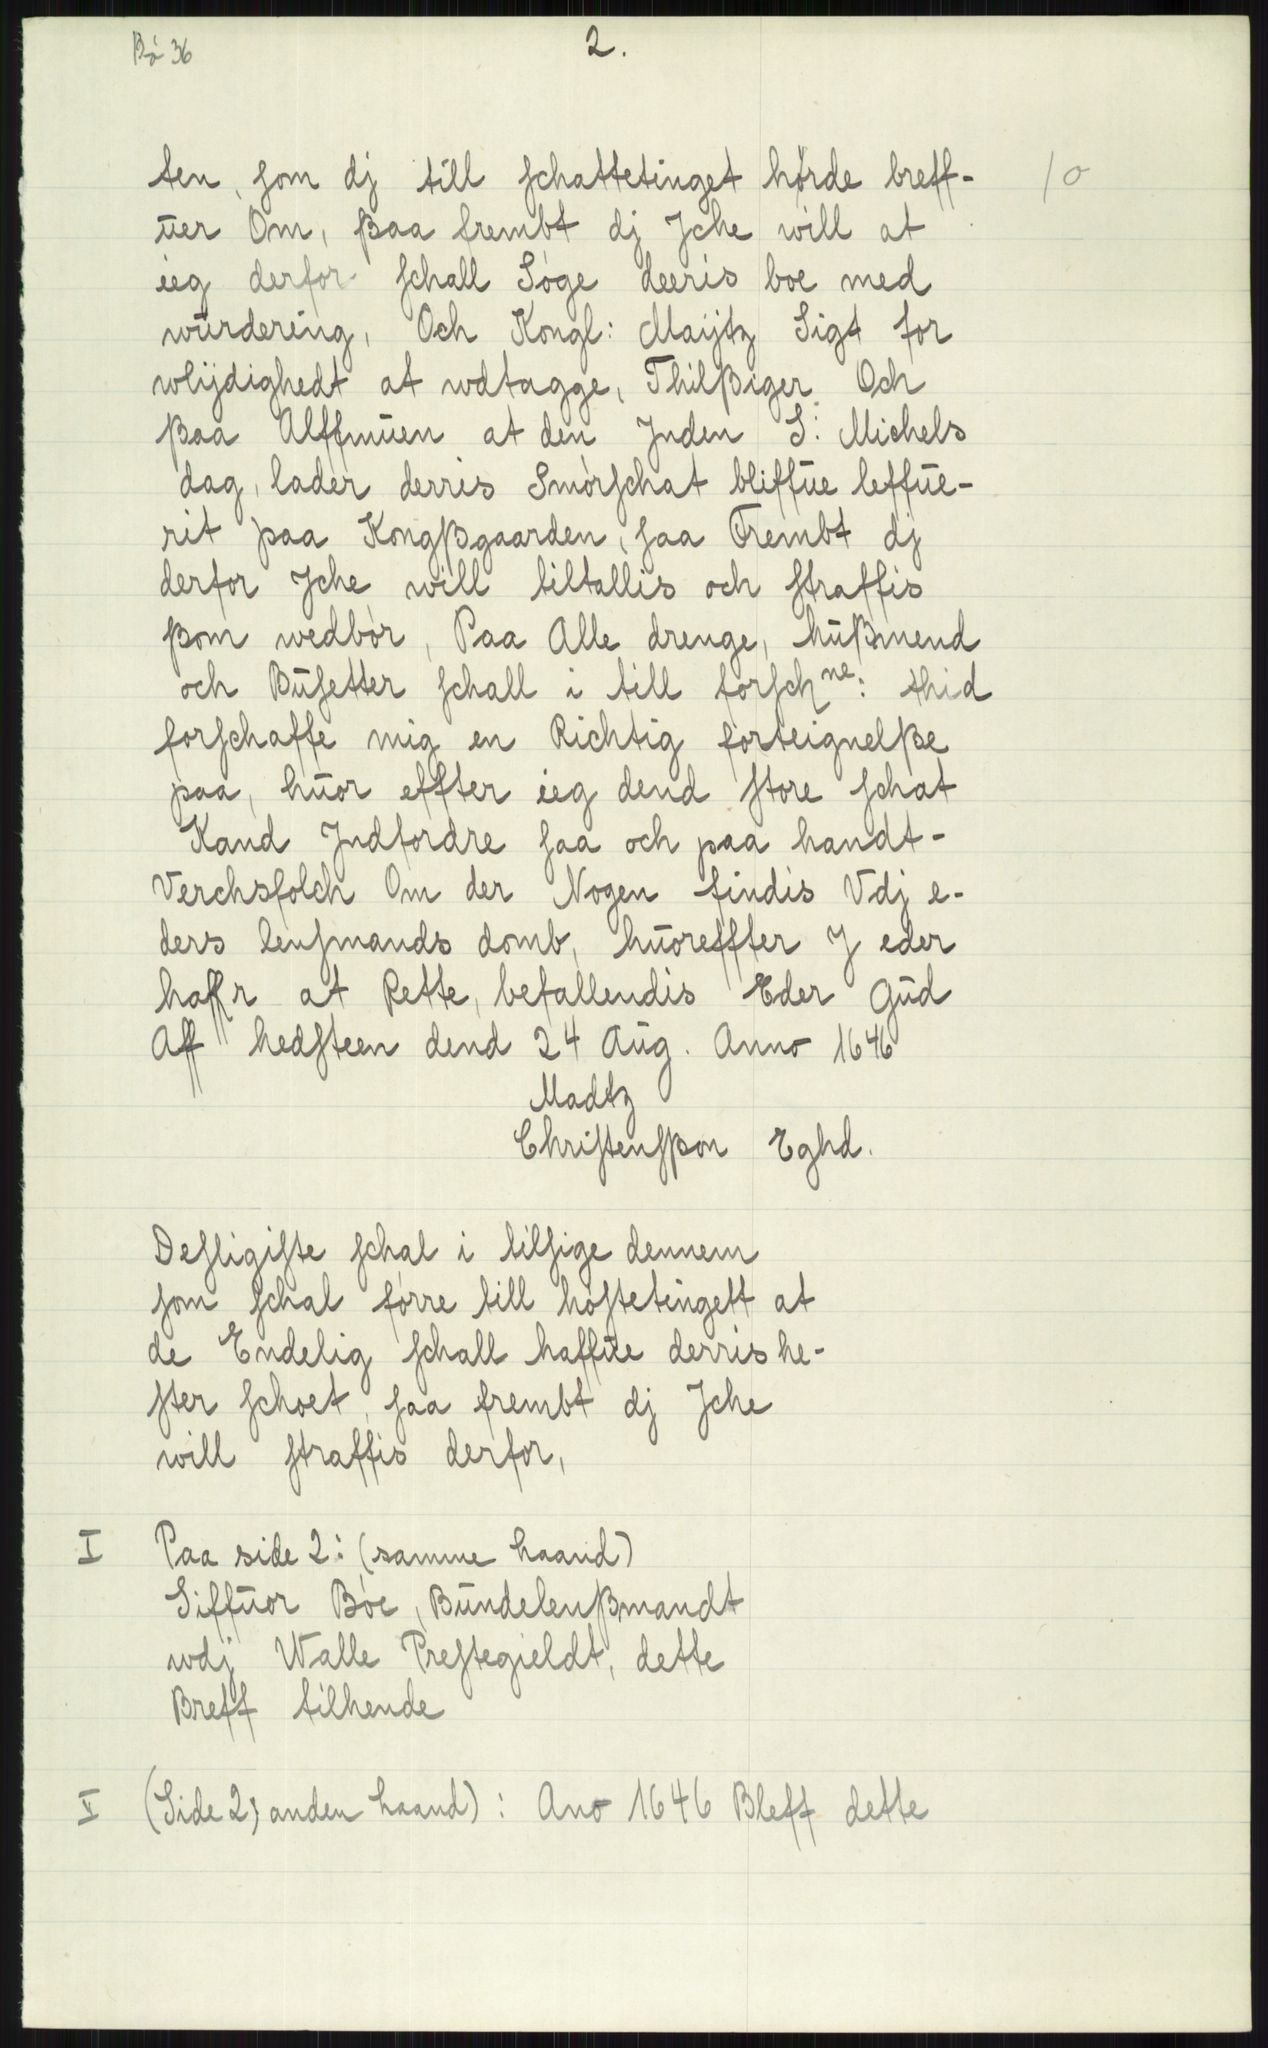 Bø 36
2.
ten, som dj till schattetinget hørde breff-
/ o
ŭer Om, ßaa frembt dj Jche will at
ieg derfor schall Søge deeris boe med
wŭrdering, Och Kongl: Maijtz Sigt for
wlijdighedt at wdtagge, Thilßiger Och
ßaa Alffmŭen at den Jnden S: Michels
dag, lader derris Smørschat bliffŭe leffŭe-
rit paa Kongßgaarden, saa Frembt dj
derfor Jche will tiltallis och straffis
ßom wedbør, Paa Alle drenge, hŭßmend
och Bŭsetter schall i till forschne: thid
forschaffe mig en Richtig forteignelße
paa, hŭor effter ieg dend store schat
Kand Jndfordre saa och paa handt-
Verchsfolch Om der Nogen findis Vdj e-
ders lensmands domb, hŭoreffter J eder
haffr at Rette, befallendis Eder Gŭd
Aff hedsteen dend 24 Aŭg. Anno 1646
Madtz
Christensßon Eghd.
Desligiste schal i tilsige dennem
som schal førre till høstetingett at
de Endelig schall haffŭe derris he-
ster schoet, saa frembt dj Jche
will straffis derfor,
I Paa side 2: (samme haand)
Siffŭor Bøe, Bŭndelenßmandt
wdj Walle Prestegieldt, dette
Breff tilhende
II (Side 2; anden haand): Ano 1646 Bleff dette